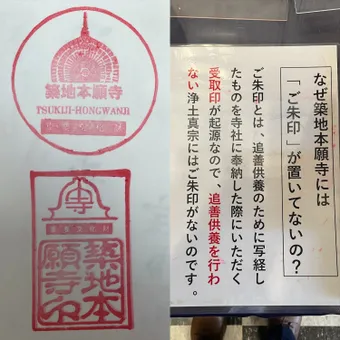 築地本願寺
TSUKIJI-HONGWANJI
寺
築地本
願寺印
なぜ築地本願寺には
「ご朱印」が置いてないの？
ご朱印とは、追善供養のために写経し
たものを寺社に奉納した際にいただく
受取印が起源なので、追善供養を行わ
ない浄土真宗にはご朱印がないのです。